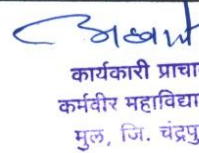 कार्यकारी प्राचा
कर्मवीर महाविद्या
मुल, जि. चंद्रपु